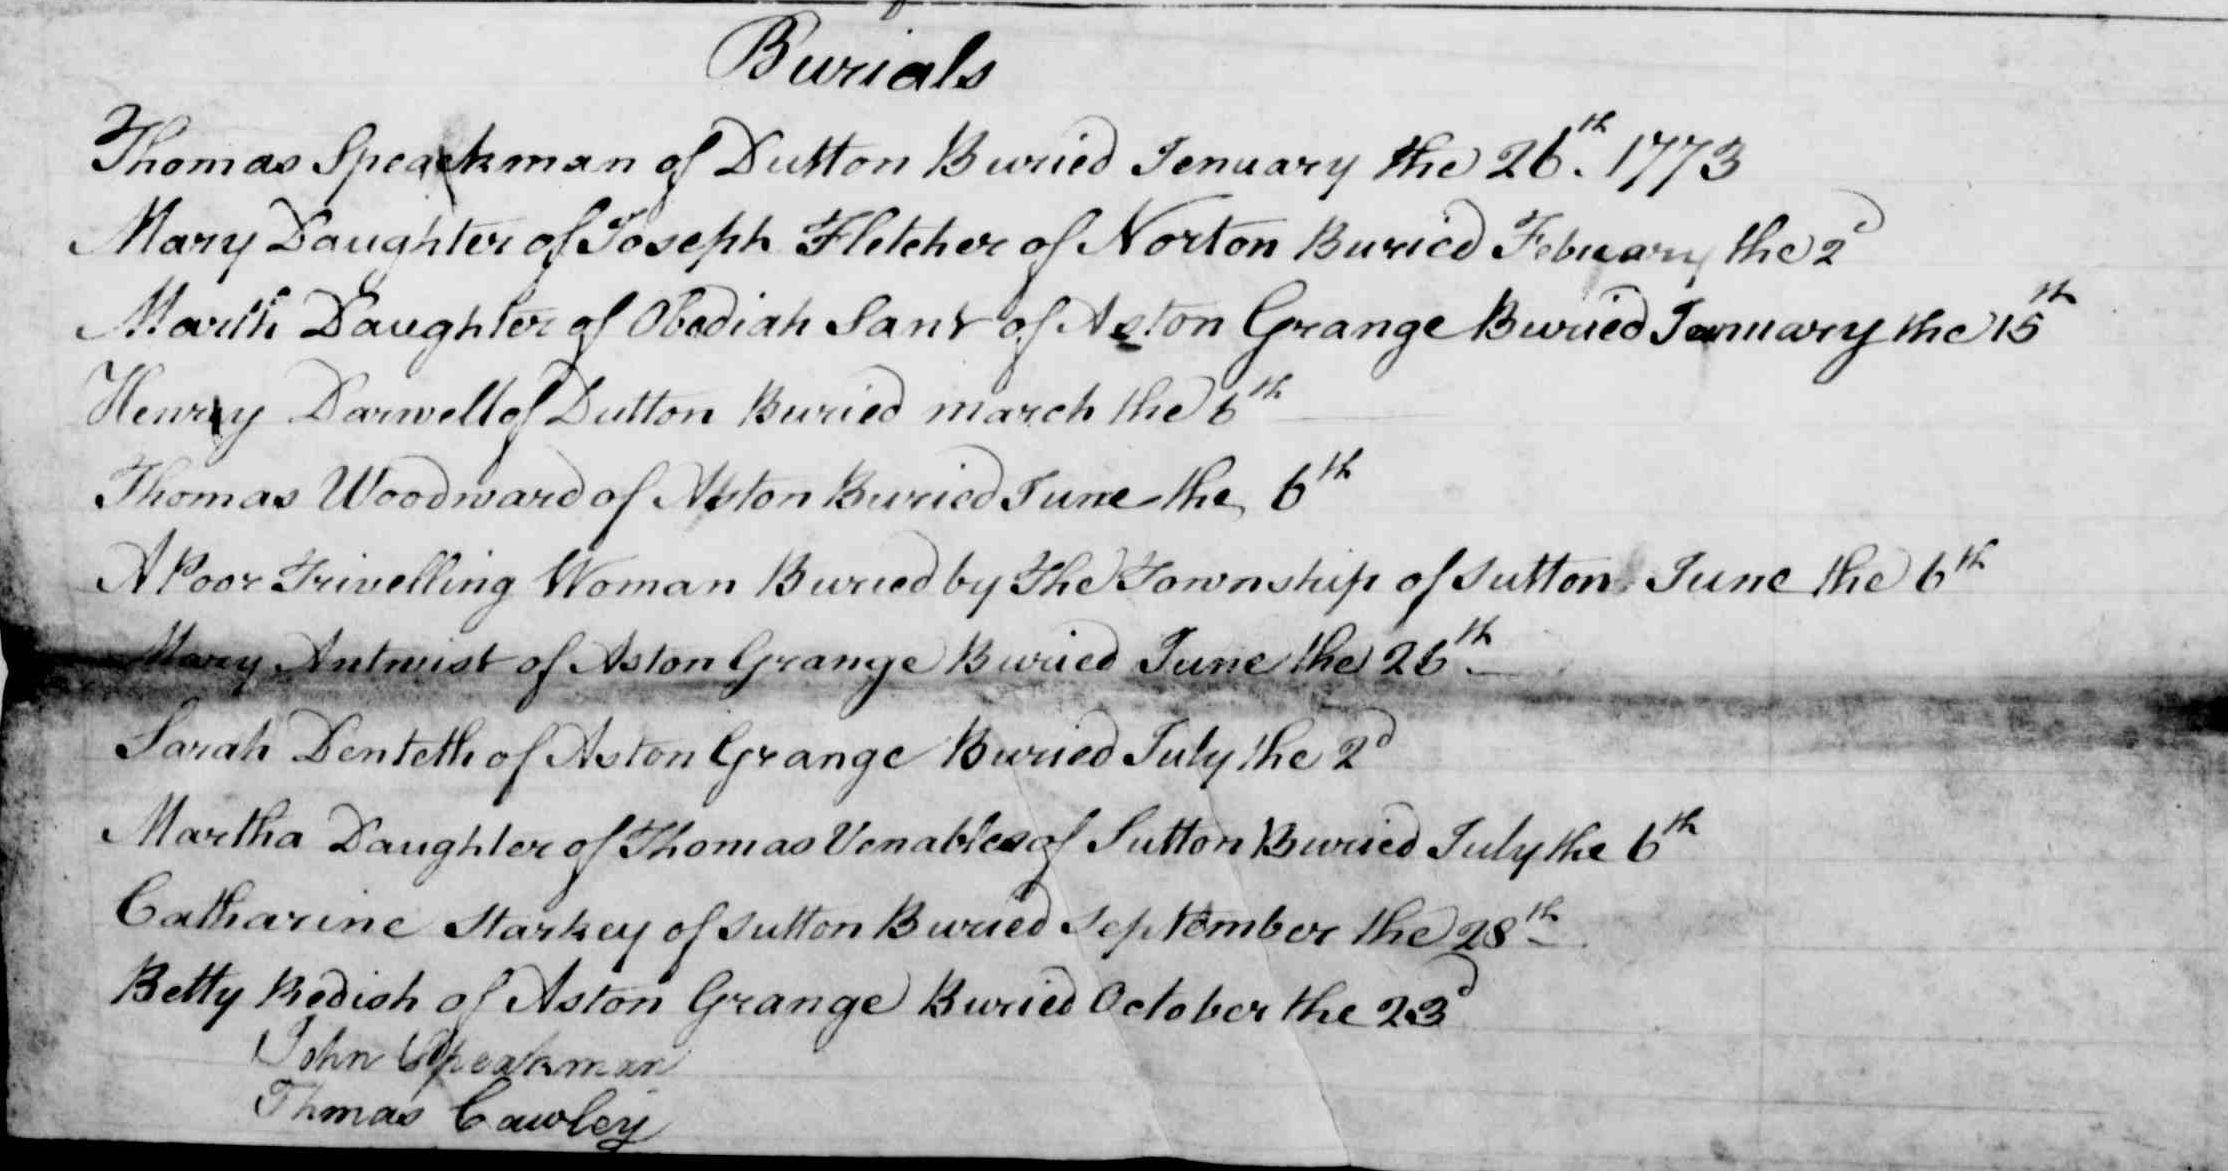 Burials
Thomas Speackman of Dutton Buried Jenuary the 26th. 1773
Mary Daughter of Joseph Fletcher of Norton Buried Febuary the 2d
Marth Daughter of Obediah Sant of Aston Grange Buried January the 15th
Henry Darwell of Dutton Buried march the 6th
Thomas Woodward of Aston Buried June the 6th
A Poor Trivelling Woman Buried by The Township of Sutton June the 6th
Mary Antwist of Aston Grange Buried June the 26th
Sarah Denteth of Aston Grange Buried July the 2d
Martha Daughter of Thomas Venables of Sutton Buried July the 6th
Catharine Starkey of Sutton Buried September the 28th
Betty Redish of Aston Grange Buried October the 23d
John Speakman
Thmas Cawley